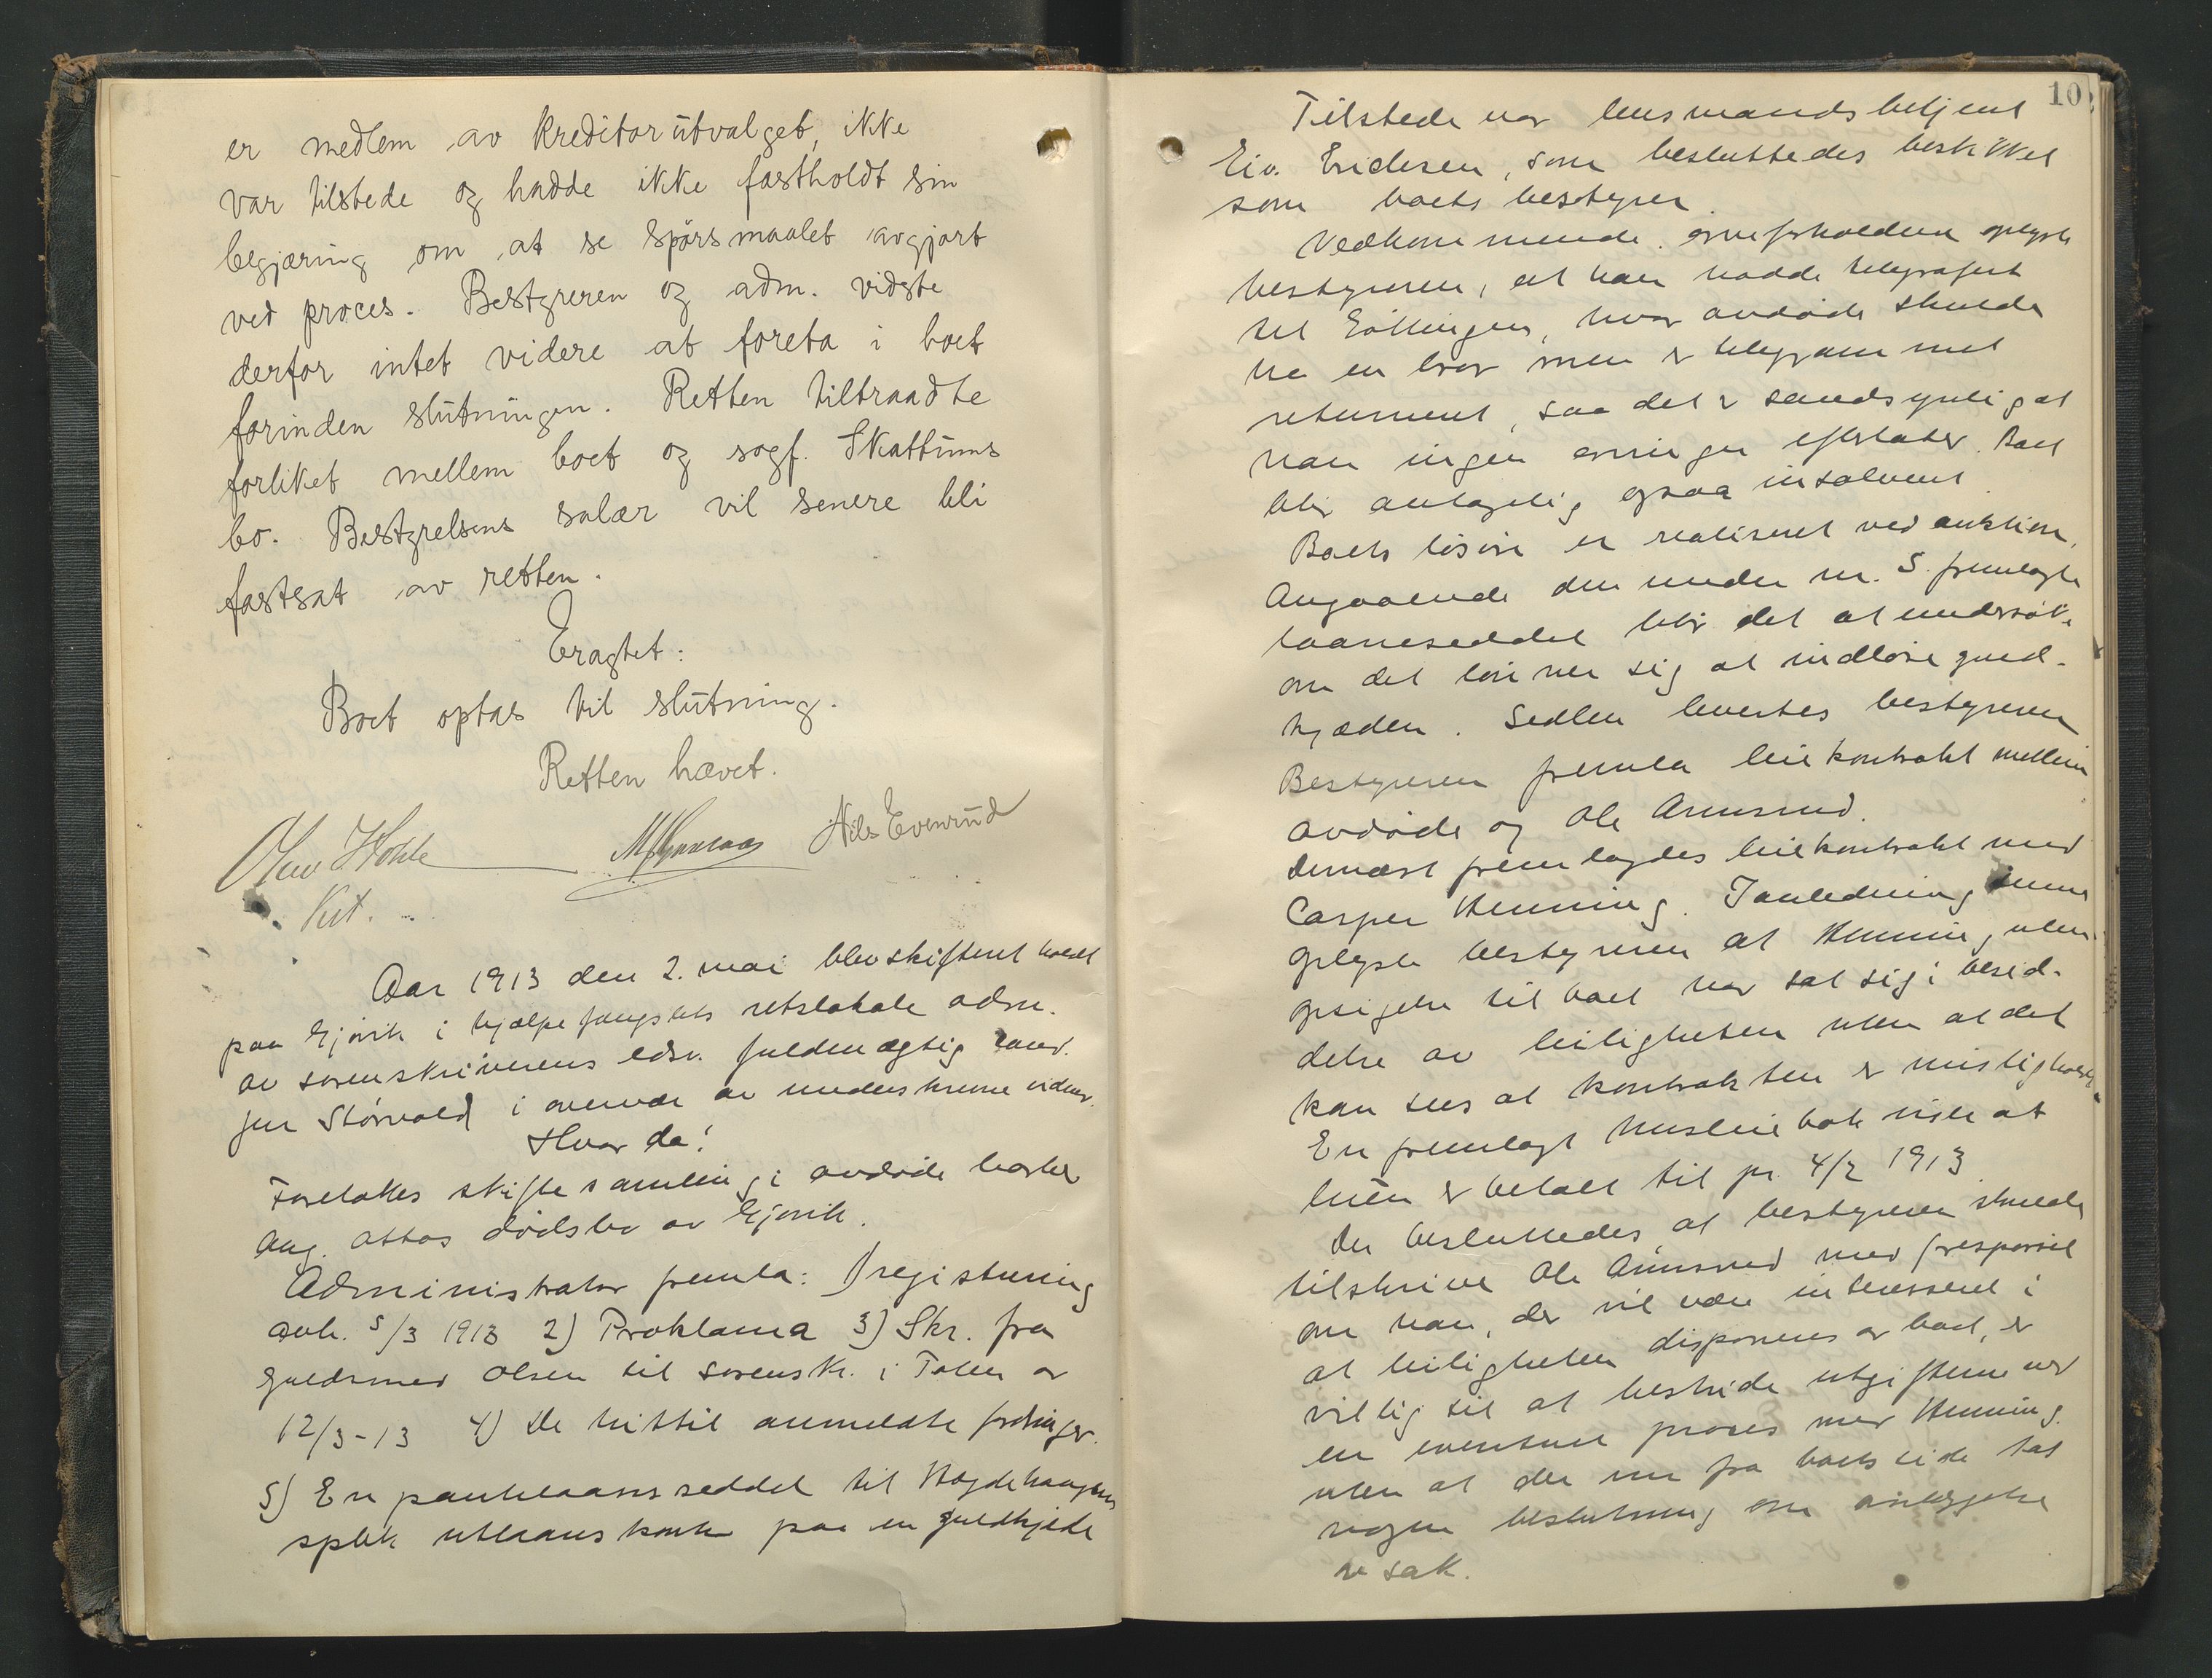 er medlem av kreditorutvalget, ikke
var tilstede og hadde ikke fastholdt sin
begjæring om at se spørsmaalet avgjort
ved proces. Bestyreren og adm. vidste
derfor intet videre at foreta i boet
forinden slutningen. Retten tiltraadte
forliket mellem boet og sogf. Skattums
bo. Bestyrelsens salær vil senere bli
fastsat av retten.
Eragtet:
Boet optas til slutning.
Retten hævet.
Nils Evenrud
Kst.
Aar 1913 den 2. mai blev skifteret holdt
paa Gjøvik i hjælpefængslets retslokale adm.
av sorenskriverens edsv. fuldmægtig cand.
jur Størvold i overvær av underskrevne vidner.
Hvor da:
Foretokes skiftesamling i avdøde
Aug. Ottos dødsbo av Gjøvik.
Administrator fremla: 1) registrering
avh. 5/3 1913 2) Proklama 3) Skr. fra
guldsmed Olsen til sorenskr. i Toten av
12/3-13 4) De hittil anmeldte fordringer.
5) En pantelaansseddel til Hægdehaugens
utlaanskontor paa en guldkjede
10
Tilstede var lensmandsbetjent
Eiv. Erichsen, som besluttedes beskikket
som boets bestyrer.
Vedkommende arveforholdene oplyste
bestyreren, at han hadde telegrafert
til Göttingen, hvor avdøde skulde
ha en bror men er telegram met
returnert, saa det er sandsynlig at
han ingen arvinger efterlater. Boet
blir antagelig ogsaa insolvent.
Boets løsøre er realisert ved auktion.
Angaaende den under nr. 5 fremlagte
laaneseddel blir det at undersøke
om det lønner sig at indløse guld-
kjæden. Sedlen levertes bestyreren
Bestyreren fremla leiekontrakt mellem
avdøde og Ole Amsrud.
Dernæst fremlagdes leiekontrakt med
Casper Henning. I anledning denne
oplyste bestyreren at Henning uten
opsigelse til boet har sat sig i besid-
delse av leiligheten uten at det
kan sees at kontrakten er misligholdt.
En fremlagt husleiebok viser at
leien er betalt til pr. 4/2 1913
Det besluttedes at bestyreren skulde
tilskrive Ole Amsrud med forespørsel
om han, der vil være interessert i
at leiligheten disponeres av boet, er
villig til at bestride utgifterne ved
en eventuel proces med Henning.
uten at der nu fra boets side tat
nogen beslutning om anlæggelse
av sak.